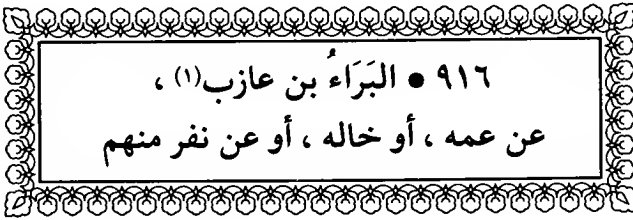 ٩١٦ ● البَرَاءُ بن عازب(١) ،
عن عمه ، أو خاله ، أو عن نفر منهم